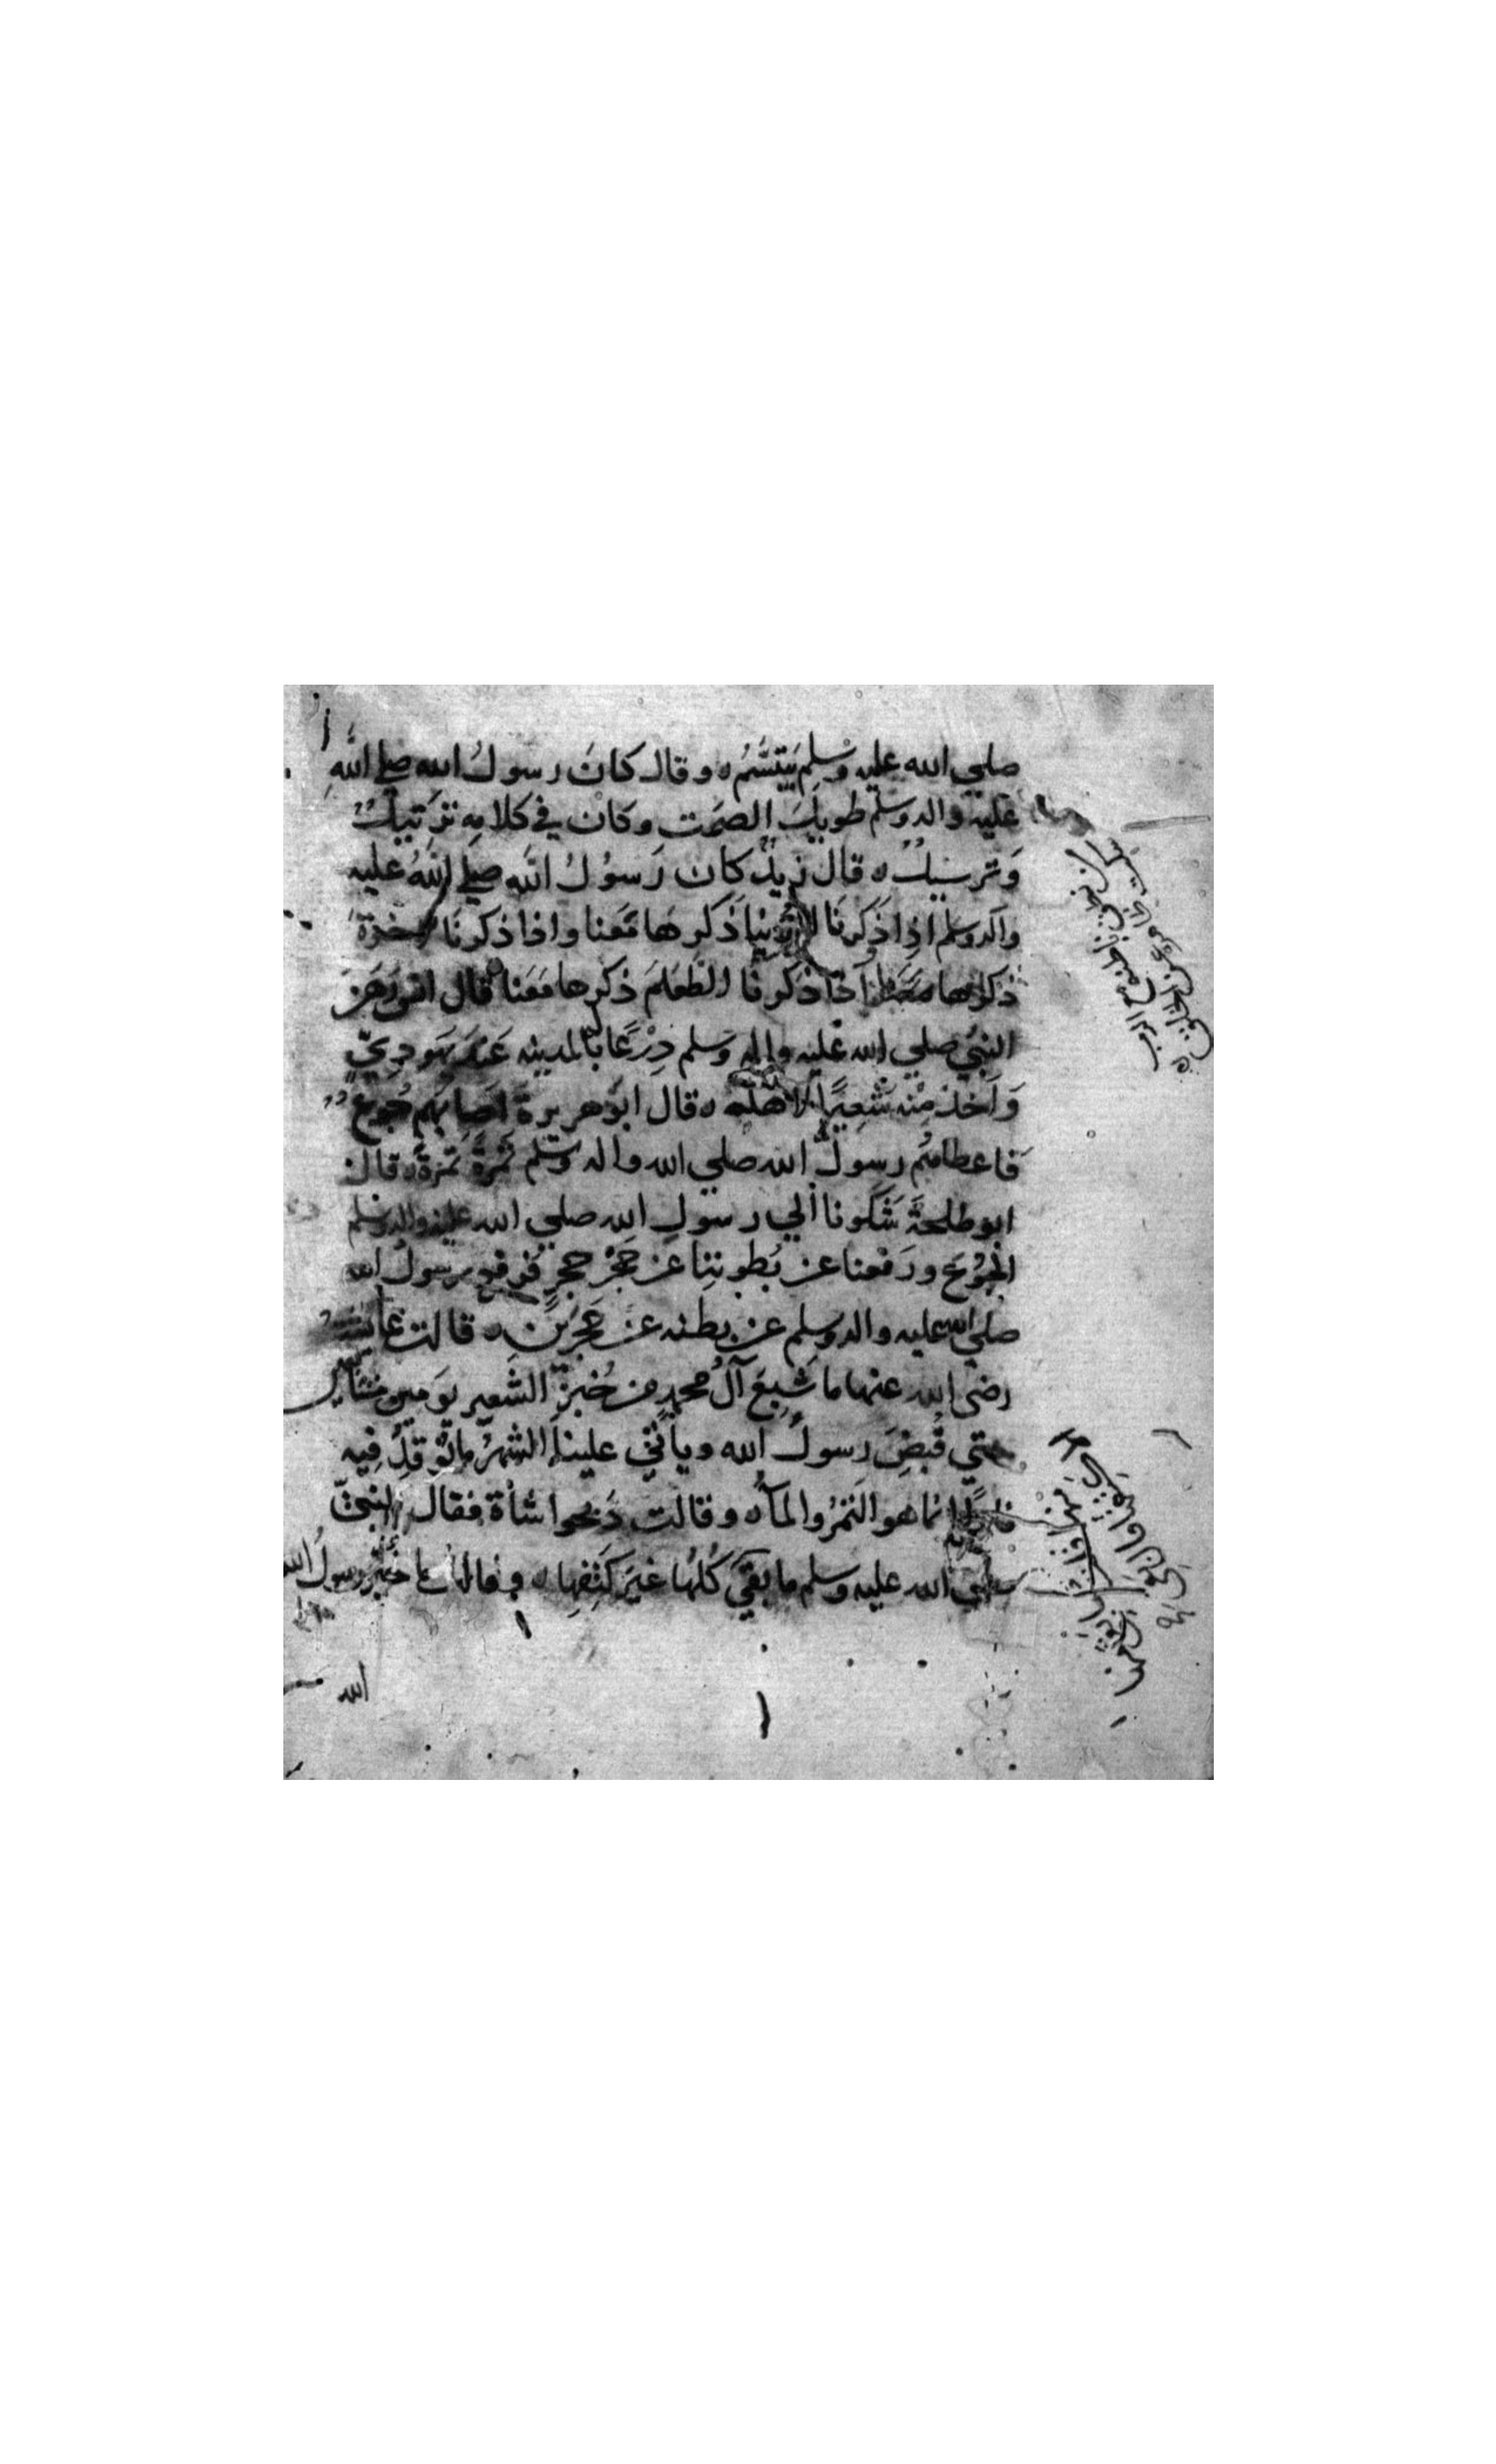 صلي الله عليه وسلم يتبسَّمُ ٥ وقال كانَ رسولُ الله صلي اللهِ
عليه واله وسلم طويلَ الصمت وكان في كلامه تَرْتيلٌ
وَترسيلٌ ٥ قال زيدٌ كان رَسوُلُ اللَّه صلي اللهُ عليه
واله وسلم اذِا ذَكَرنَا الدُّنيا ذَكرها مَعَنا واذا ذكرنَا الاخرَةَ
ذكرها معنا واذا ذكرنا الطَّعَامَ ذكرها مَعَنا قال انس رَهَنَ
النبيُّ صلي الله عليه واله وسلم دِرْعًا بالمدينه عَندَ يهَودِيٍّ
وَاَخذ مِنه شَعِيرًا لاهله ٥ قال ابوُهريرة اَصابَهم جُوَعٌ
فاعطاهُم رسولُ الله صلي الله واله وسلم تَمْرةً تَمْرَةً ٥ قال
ابوطلحةَ شَكونا اِلي رسولِ الله صلي الله عليه واله وسلم
الجُوْعَ ورَفعنا عن بُطوننِا عَن حَجَرْ حجرٍ فَرفع رسولُ الله
صلي الله عليه واله وسلم عن بطنه عَن حَجَرينِ ٥ قالت عايشه
رضي الله عنها ما شَبِعَ آلُ محمدٍ من خُبزِ الشَعير يوَمين
حتي قُبضَ رسولُ الله وياتي علينا الشهرُ ما نوُقدِ فِيه
نارًا انما هو التَمْرُ والمآءُ ٥ وقالت ذَبحوا شاةً فقال النبيُّ
صلي الله عليه وسلم ما بَقيَ كُلهُا غيرَ كَتِفِها ٥ رسولُ الله
الله
١